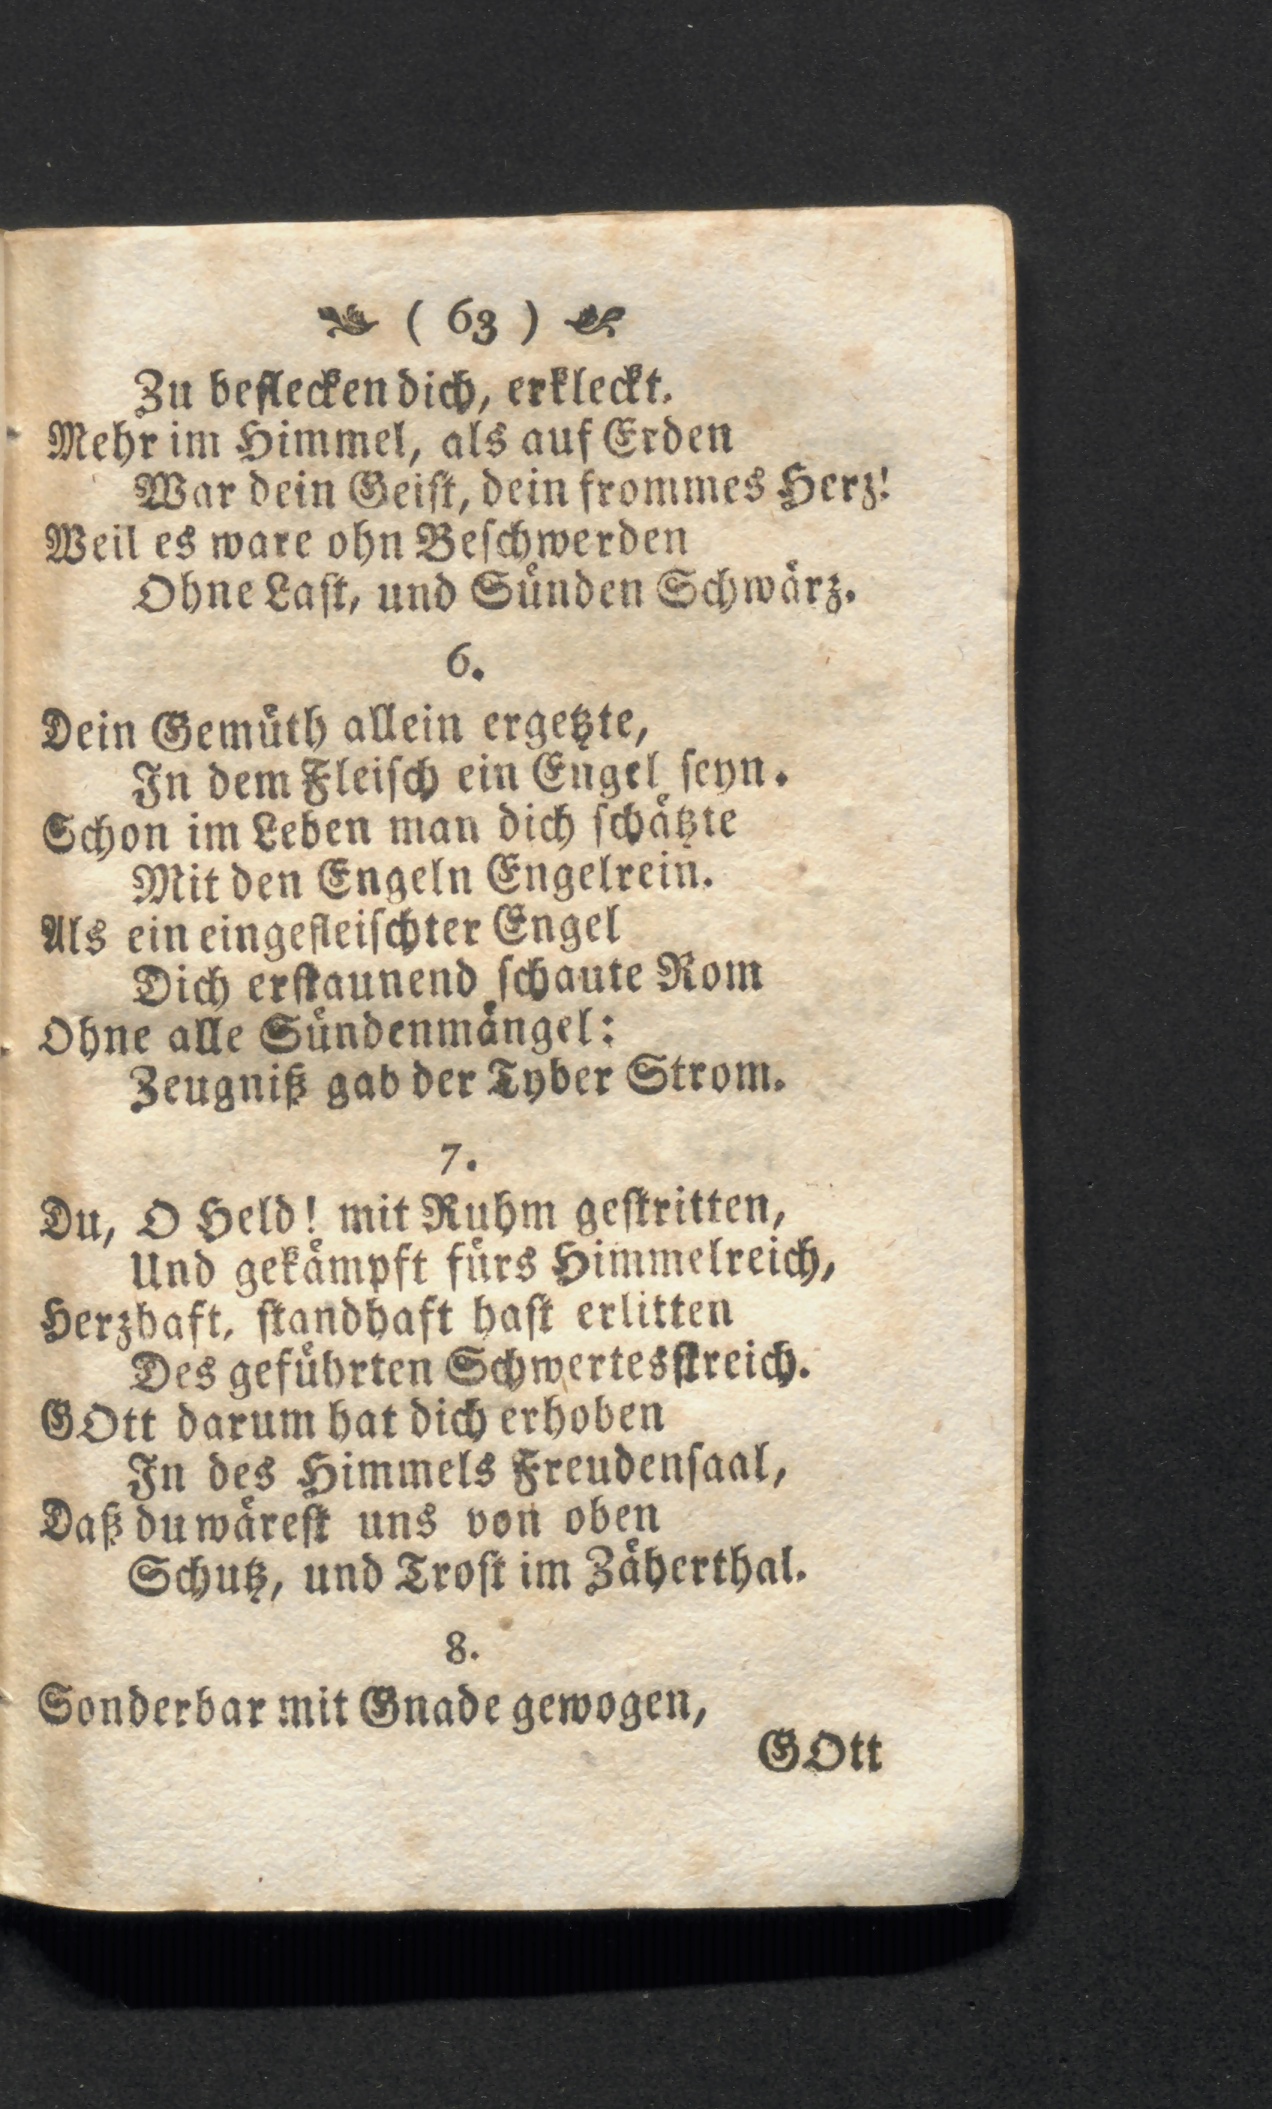 ( 63 )
Zu beflecken dich, erkleckt.
Mehr im Himmel, als auf Erden
War dein Geiſt, dein frommes Herz!
Weil es ware ohn Beſchwerden
Ohne Laſt, und Sünden Schwärz.
6.
Dein Gemüth allein ergetzte,
In dem Fleiſch ein Engel ſeyn.
Schon im Leben man dich ſchätzte
Mit den Engeln Engelrein.
Als ein eingefleiſchter Engel
Dich erſtaunend ſchaute Rom
Ohne alle Sündenmängel:
Zeugniß gab der Tyber Strom.
7.
Du, O Held! mit Ruhm geſtritten,
Und gekämpft fürs Himmelreich,
Herzhaft, ſtandhaft haſt erlitten
Des geführten Schwertesſtreich.
GOtt darum hat dich erhoben
In des Himmels Freudenſaal,
Daß du wäreſt uns von oben
Schutz, und Troſt im Zäherthal.
8.
Sonderbar mit Gnade gewogen,
GOtt